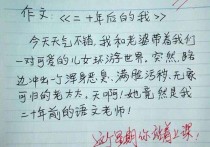 作文:《二十年后的我》
今天天气不错,我和老婆带着我们
一对可爱的儿女环游世界,突然,路
边冲出一与浑身恶臭、满脸污秽、无家
可归的老太太,天啊!她竟然是我
二十年前的语文老师!
这个星期你站着上课!